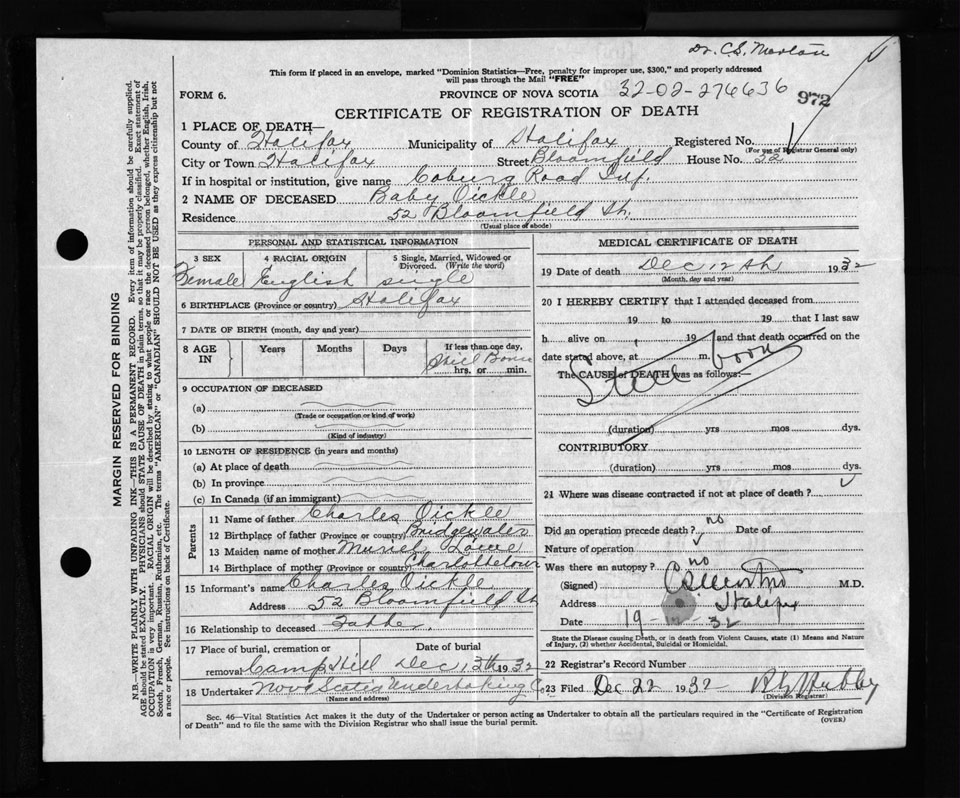 Dr. C.S. Morton
This form if placed in an envelope, marked "Dominion Statistics—Free, penalty for improper use, $300," and properly addressed
will pass through the Mail "FREE"
FORM 6. PROVINCE OF NOVA SCOTIA 32-02-276636 972
CERTIFICATE OF REGISTRATION OF DEATH
1 PLACE OF DEATH—
County of Halifax Municipality of Halifax Registered No.
(For use of Registrar General only)
City or Town Halifax Street Bloomfield House No. 52
If in hospital or institution, give name Coburg Road Inf.
2 NAME OF DECEASED Baby Oickle
Residence 52 Bloomfield St.
(Usual place of abode)
PERSONAL AND STATISTICAL INFORMATION
3 SEX 4 RACIAL ORIGIN 5 Single, Married, Widowed or
Divorced. (Write the word)
Female English single
6 BIRTHPLACE (Province or country) Halifax
7 DATE OF BIRTH (month, day and year)
8 AGE IN Years Months Days If less than one day,
Still Borne
hrs. or min.
9 OCCUPATION OF DECEASED
(a)
(Trade or occupation or kind of work)
(b)
(Kind of industry)
10 LENGTH OF RESIDENCE (in years and months)
(a) At place of death
(b) In province
(c) In Canada (if an immigrant)
Parents
11 Name of father Charles Oickle
12 Birthplace of father (Province or country) Bridgewater
13 Maiden name of mother Muriel
14 Birthplace of mother (Province or country) Charlottetown
15 Informant's name Charles Oickle
Address 52 Bloomfield St
16 Relationship to deceased Father
17 Place of burial, cremation or Date of burial
removal Camp Hill Dec 13th 1932
18 Undertaker Nova Scotia Undertaking Co
(Name and address)
MEDICAL CERTIFICATE OF DEATH
19 Date of death Dec 12th 1932
(Month, day and year)
20 I HEREBY CERTIFY that I attended deceased from
19 to 19 that I last saw
h alive on , 19 and that death occurred on the
date stated above, at m.
The CAUSE of DEATH was as follows:—
Still born
(duration) yrs mos dys.
CONTRIBUTORY
(duration) yrs mos dys.
21 Where was disease contracted if not at place of death?
Did an operation precede death? no Date of
Nature of operation
Was there an autopsy? no
(Signed) CS Morton M.D.
Address Halifax
Date 19 32
State the Disease causing Death, or in death from Violent Causes, state (1) Means and Nature
of Injury, (2) whether Accidental, Suicidal or Homicidal.
22 Registrar's Record Number
23 Filed Dec 22 1932
(Division Registrar)
Sec. 46—Vital Statistics Act makes it the duty of the Undertaker or person acting as Undertaker to obtain all the particulars required in the "Certificate of Registration
of Death" and to file the same with the Division Registrar who shall issue the burial permit. (OVER)
MARGIN RESERVED FOR BINDING
N.B.—WRITE PLAINLY WITH UNFADING INK—THIS IS A PERMANENT RECORD. Every item of information should be carefully supplied.
AGE should be stated EXACTLY. PHYSICIANS should STATE CAUSE OF DEATH in plain terms, so that it may be properly classified. Exact statement of
OCCUPATION is very important. RACIAL ORIGIN will be described by stating to what people or race the deceased person belonged, whether English, Irish,
Scotch, French, German, Russian, Ruthenian, etc. The terms "AMERICAN" or "CANADIAN" SHOULD NOT BE USED as they express citizenship but not
a race or people. See instructions on back of Certificate.